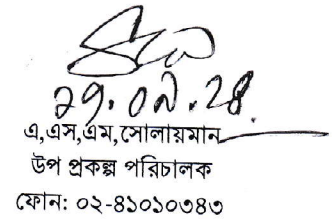 ২৭.০৯.২৪
এ,এস,এম,সোলায়মান
উপ প্রকল্প পরিচালক
ফোন: ০২-৪১০১০৩৪৩